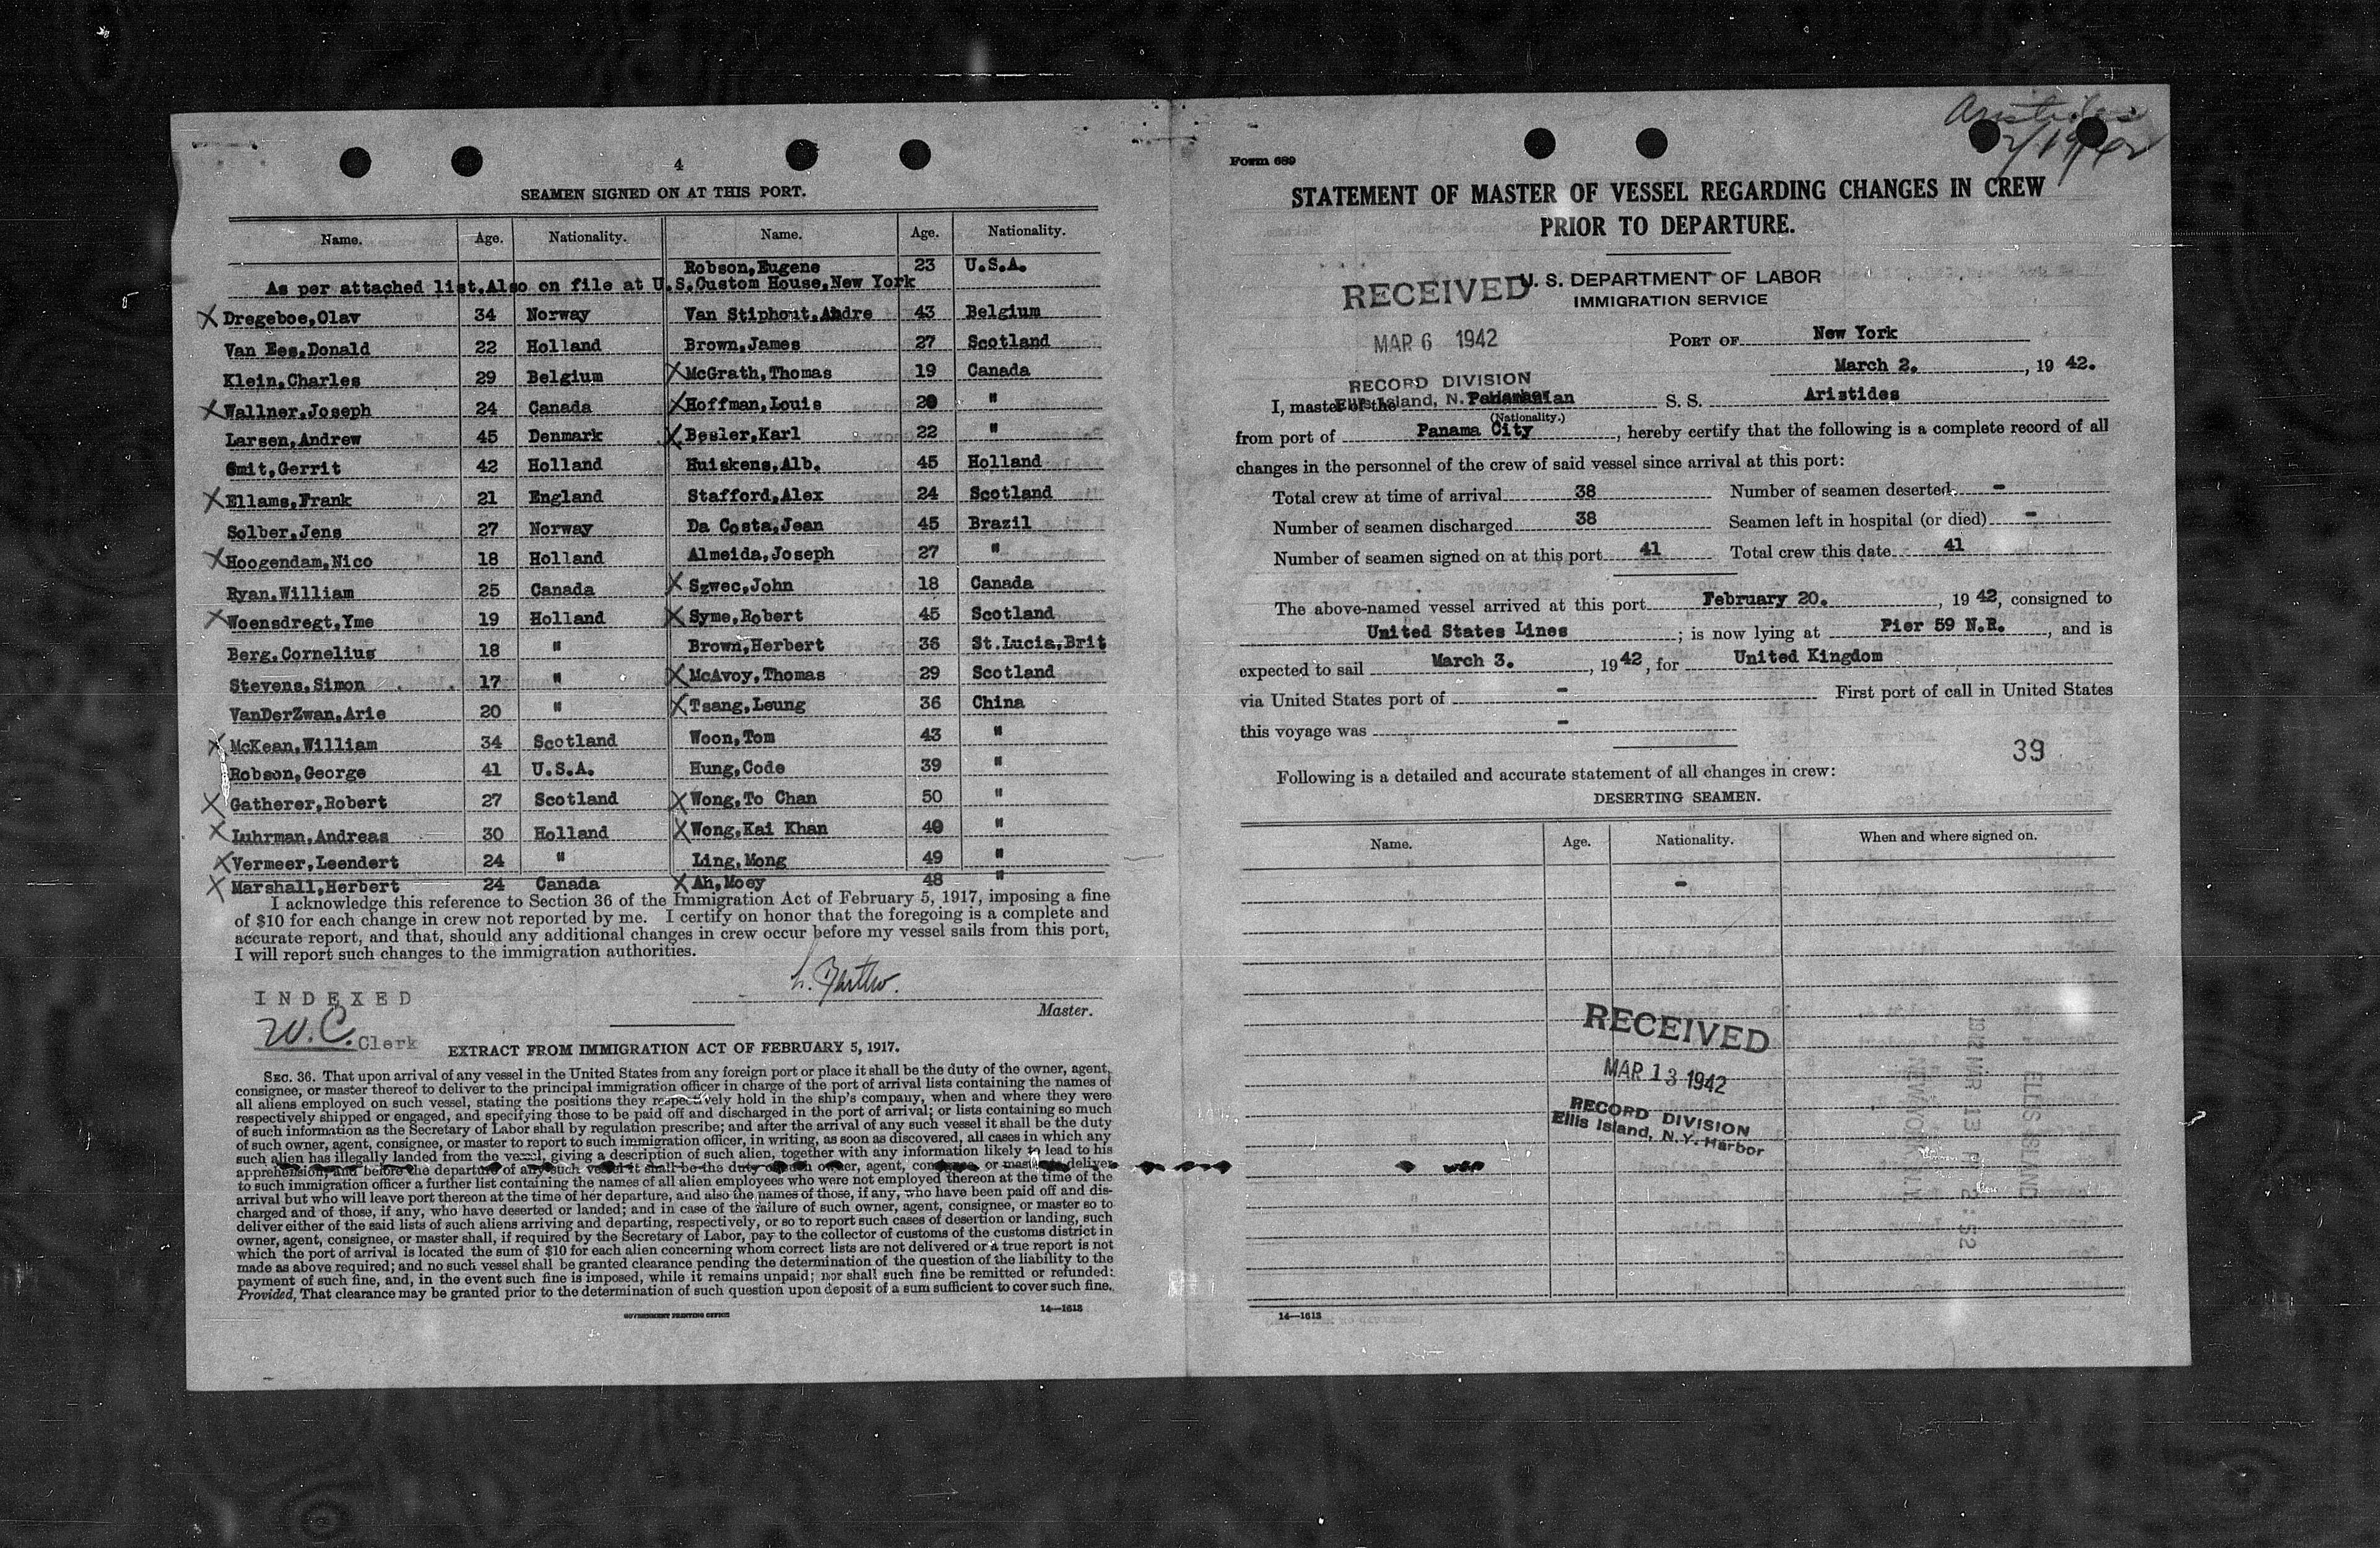 4
SEAMEN SIGNED ON AT THIS PORT.
Name. Age. Nationality. Name. Age. Nationality.
Robson,Eugene 23 U.S.A.
As per attached list.Also on file at U.S.Custom House,New York
X Dregeboe,Olav 34 Norway Van Stiphout,Andre 43 Belgium
Van Ees,Donald 22 Holland Brown,James 27 Scotland
Klein,Charles 29 Belgium X McGrath,Thomas 19 Canada
X Wallner,Joseph 24 Canada X Hoffman,Louis 20 "
Larsen,Andrew 45 Denmark X Besler,Karl 22 "
Smit,Gerrit 42 Holland Huiskens,Alb. 45 Holland
X Ellams,Frank 21 England Stafford,Alex 24 Scotland
Solber,Jens 27 Norway Da Costa,Jean 45 Brazil
X Hoogendam,Nico 18 Holland Almeida,Joseph 27 "
Ryan,William 25 Canada X Szwec,John 18 Canada
X Woensdregt,Yme 19 Holland X Syme,Robert 45 Scotland
Berg,Cornelius 18 " Brown,Herbert 36 St.Lucia,Brit
Stevens,Simon 17 " X McAvoy,Thomas 29 Scotland
VanDerZwan,Arie 20 " X Tsang,Leung 36 China
X McKean,William 34 Scotland Woon,Tom 43 "
Robson,George 41 U.S.A. Hung,Code 39 "
X Gatherer,Robert 27 Scotland X Wong,To Chan 50 "
X Luhrman,Andreas 30 Holland X Wong,Kai Khan 40 "
X Vermeer,Leendert 24 " Ling,Mong 49 "
X Marshall,Herbert 24 Canada X Ah,Moey 48 "
I acknowledge this reference to Section 36 of the Immigration Act of February 5, 1917, imposing a fine
of $10 for each change in crew not reported by me. I certify on honor that the foregoing is a complete and
accurate report, and that, should any additional changes in crew occur before my vessel sails from this port,
I will report such changes to the immigration authorities.
INDEXED
Master.
W.C. Clerk
EXTRACT FROM IMMIGRATION ACT OF FEBRUARY 5, 1917.
SEC. 36. That upon arrival of any vessel in the United States from any foreign port or place it shall be the duty of the owner, agent,
consignee, or master thereof to deliver to the principal immigration officer in charge of the port of arrival lists containing the names of
all aliens employed on such vessel, stating the positions they respectively hold in the ship's company, when and where they were
respectively shipped or engaged, and specifying those to be paid off and discharged in the port of arrival; or lists containing so much
of such information as the Secretary of Labor shall by regulation prescribe; and after the arrival of any such vessel it shall be the duty
of such owner, agent, consignee, or master to report to such immigration officer, in writing, as soon as discovered, all cases in which any
such alien has illegally landed from the vessel, giving a description of such alien, together with any information likely to lead to his
apprehension; and before the departure of any such vessel it shall be the duty of such owner, agent, consignee, or master to deliver
to such immigration officer a further list containing the names of all alien employees who were not employed thereon at the time of the
arrival but who will leave port thereon at the time of her departure, and also the names of those, if any, who have been paid off and dis-
charged and of those, if any, who have deserted or landed; and in case of the failure of such owner, agent, consignee, or master so to
deliver either of the said lists of such aliens arriving and departing, respectively, or so to report such cases of desertion or landing, such
owner, agent, consignee, or master shall, if required by the Secretary of Labor, pay to the collector of customs of the customs district in
which the port of arrival is located the sum of $10 for each alien concerning whom correct lists are not delivered or a true report is not
made as above required; and no such vessel shall be granted clearance pending the determination of the question of the liability to the
payment of such fine, and, in the event such fine is imposed, while it remains unpaid; nor shall such fine be remitted or refunded:
Provided, That clearance may be granted prior to the determination of such question upon deposit of a sum sufficient to cover such fine.
GOVERNMENT PRINTING OFFICE 14—1613
Aristides
2/19/42
Form 689
STATEMENT OF MASTER OF VESSEL REGARDING CHANGES IN CREW
PRIOR TO DEPARTURE.
RECEIVED
U. S. DEPARTMENT OF LABOR
IMMIGRATION SERVICE
MAR 6 1942
PORT OF New York
March 2. , 19 42.
RECORD DIVISION
Ellis Island, N.
I, master of the Panamanian S. S. Aristides
(Nationality.)
from port of Panama City, hereby certify that the following is a complete record of all
changes in the personnel of the crew of said vessel since arrival at this port:
Total crew at time of arrival 38 Number of seamen deserted. -
Number of seamen discharged 38 Seamen left in hospital (or died) -
Number of seamen signed on at this port 41 Total crew this date 41
The above-named vessel arrived at this port February 20. , 19 42, consigned to
United States Lines ; is now lying at Pier 59 N.R. , and is
expected to sail March 3. , 19 42 , for United Kingdom
via United States port of - First port of call in United States
this voyage was -
39
Following is a detailed and accurate statement of all changes in crew:
DESERTING SEAMEN.
Name. Age. Nationality. When and where signed on.
-
RECEIVED
MAR 13 1942
RECORD DIVISION
Ellis Island, N.Y. Harbor
14—1613